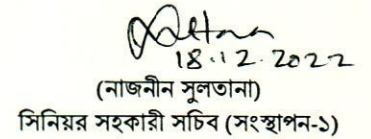 18.12.2022
(নাজনীন সুলতানা)
সিনিয়র সহকারী সচিব (সংস্থাপন-১)